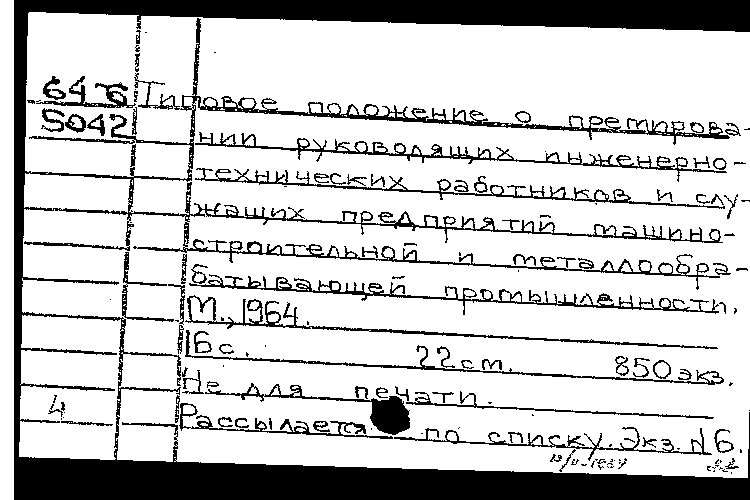 64 6 Типовое положение о премирова-
5042 нии руководящих инженерно-
технических работников и слу-
жащих предприятий машино-
строительной и металлообра-
батывающей промышленности.
М., 1964.
16 с. 22 см. 850 экз.
Не для печати.
4 Рассылается по списку. Экз. № 6.